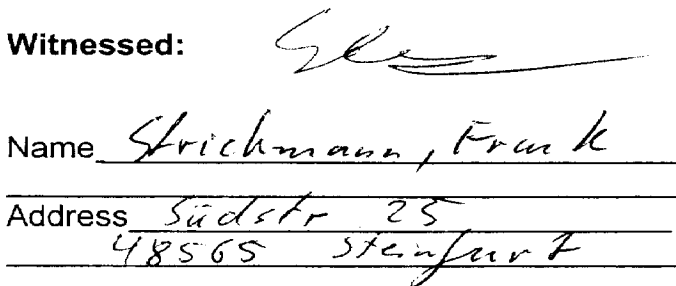 Witnessed:
Name Strichmann, Frank
Address Südstr 25
48565 Steinfurt